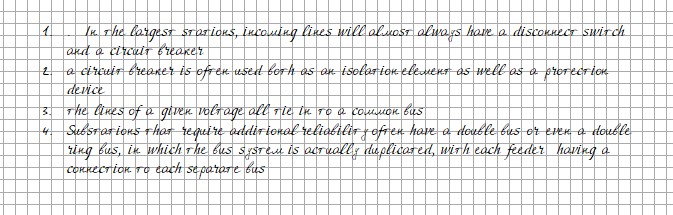 1. . In the largest stations, incoming lines will almost always have a disconnect switch
and a circuit breaker
2. a circuit breaker is often used both as an isolation element as well as a protection
device
3. the lines of a given voltage all tie in to a common bus
4. Substations that require additional reliability often have a double bus or even a double
ring bus, in which the bus system is actually duplicated, with each feeder having a
connection to each separate bus